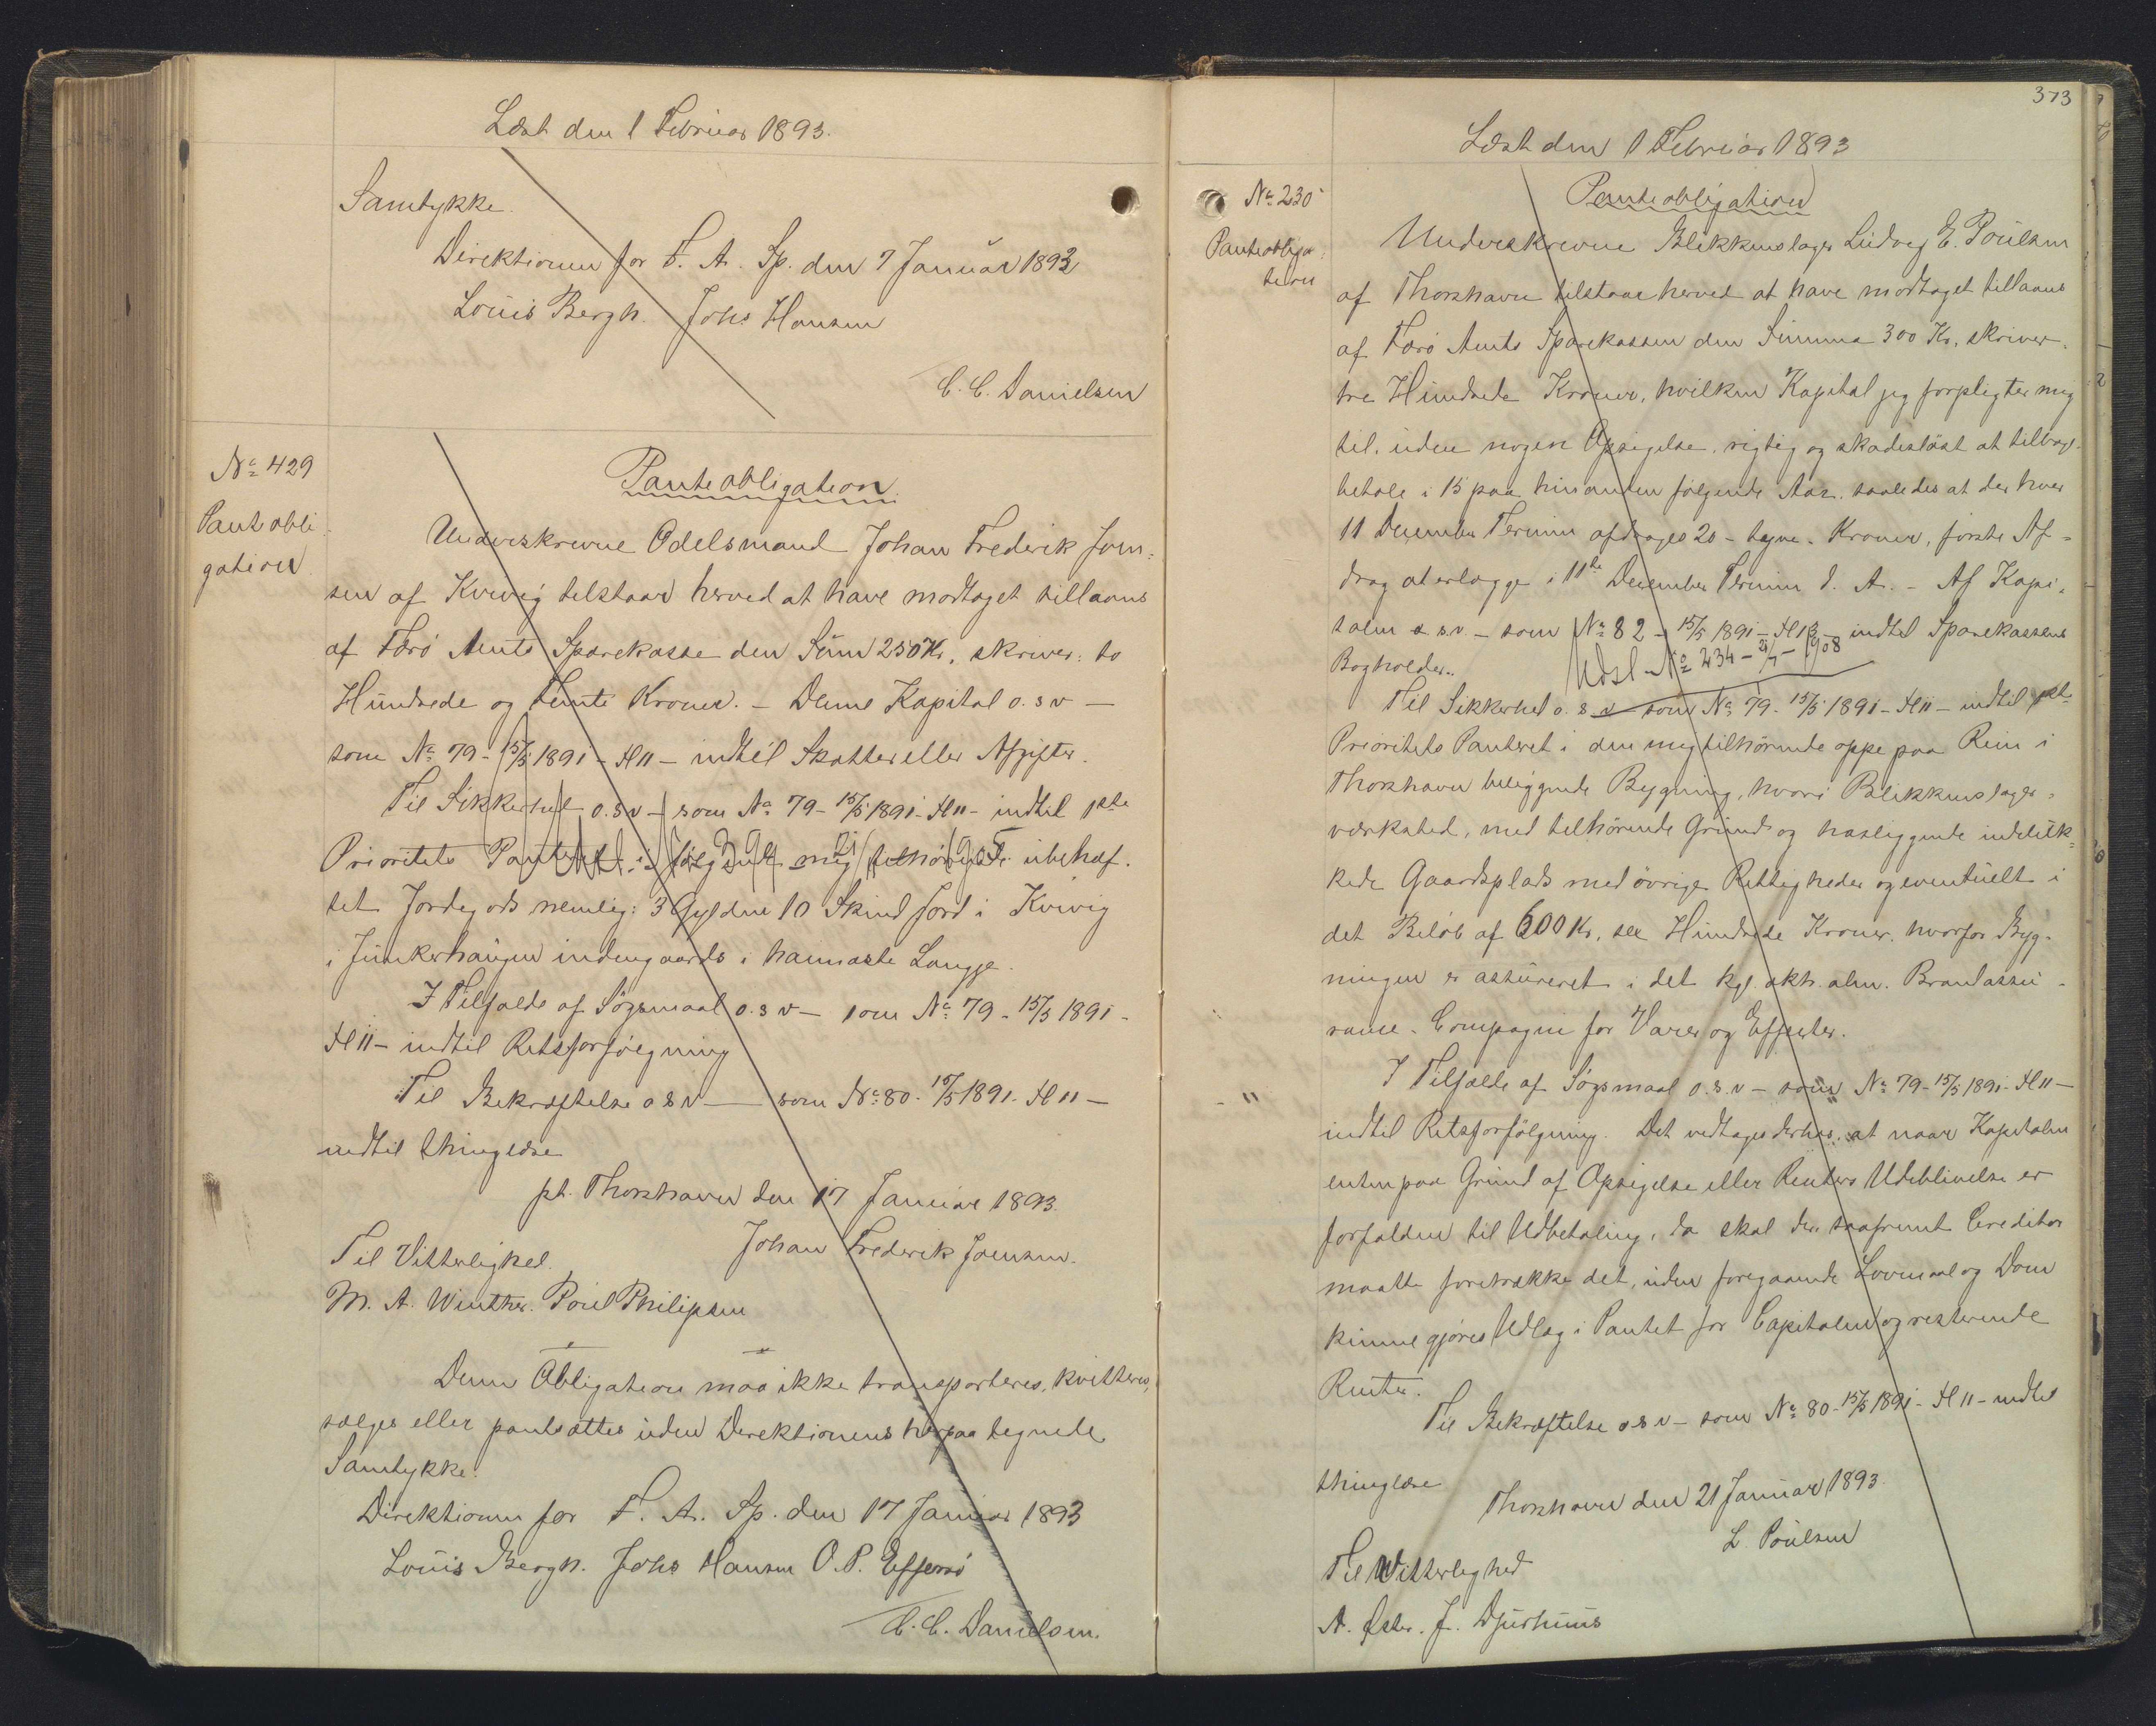 Læst den 1 Februar 1893.
Samtykke.
Direktionen for F. A. Sp. den 7 Januar 1893
Louis Bergh. Johs Hansen
C. C. Danielsen
No 429
Panteobli-
gation
Panteobligation.
Underskrevne Odelsmand Johan Frederik Joen-
sen af Kvivig tilstaar herved at have modtaget tillaans
af Færö Amts Sparekasse den Sum 250 Kr, skriver: to
Hundrede og Femti Kroner. - Denne Kapital o. s v -
som No 79 - 15/5 1891 - H 11 - indtil Skatter eller Afgifter.
Til Sikkerhed o. s v - som No 79 - 15/5 1891 - H 11 - indtil 1ste
Prioritets Panteret i følgende mig tilhørende ubehæf-
tet Jordegods nemlig: 3 Gylden 10 Skind Jord i Kvivig
i Junkerhaugen indengaards i hannaste Langge.
I Tilfælde af Søgsmaal o. s v - som No 79 - 15/5 1891 -
H 11 - indtil Retsforfølgning
Til Bekræftelse o s v - som No 80 - 15/5 1891 - H 11 -
indtil thinglæse
pt. Thorshavn den 17 Januar 1893.
Johan Frederik Joensen.
Til Vitterlighed.
M. A. Winther. Poul Philipsen
Denne Obligation maa ikke transporteres, kvitteres,
sælges eller pantsættes uden Direktionens herpaa tegnede
Samtykke.
Direktionen for F. A. Sp. den 17 Januar 1893
Louis Bergh. Johs Hansen O. P. Effersö
C. C. Danielsen.
373
Læst den 1 Februar 1893
No 230
Panteobliga-
tion
Panteobligation
Underskrevne Blikkenslager Ludvig E. Poulsen
af Thorshavn tilstaar herved at have modtaget tillaans
af Færö Amts Sparekassen den Summa 300 Kr, skriver
tre Hundrede Kroner, hvilken Kapital jeg forpligter mig
til, uden nogen Opsigelse, rigtig og skadesløst at tilbage-
betale i 15 paa hinanden følgende Aar, saaledes at der hver
11 December Termin afdrages 20 - tyve - Kroner, første Af-
drag at erlægge i 11te December Termin d. A. - Af Kapi-
talen o. s. v - som No 82 - 15/5 1891 - H 13 - indtil Sparekassens
Bogholder.
Udsl No 234 - 21/7 - 1908
Til Sikkerhed o. s v - som No 79 - 15/5 1891 - H 11 - indtil 1ste
Prioritets Panteret i den mig tilhørende oppe paa Rein i
Thorshavn beliggende Bygning, hvori Blikkenslager-
værksted, med tilhørende Grund og hosliggende indeluk-
kede Gaardsplads med øvrige Rettigheder og eventuelt i
det Beløb af 600 Kr, sex Hundrede Kroner, hvorfor Byg-
ningen er assureret i det kgl. okt. alm. Brandassu-
rance - Compagni for Varer og Effecter.
I Tilfælde af Søgsmaal o. s. v - som No 79 - 15/5 1891 - H 11 -
indtil Retsforfølgning. Det vedtages derhos at naar Kapitalen
enten paa Grund af Opsigelse eller Renters Udeblivelse er
forfalden til Udbetaling, da skal der saafremt Creditor
maatte foretrække det, uden foregaaende Lovmaal og Dom
kunne gjøres Udlæg i Pantet for Capitalen og resterende
Renter.
Til Bekræftelse o s v - som No 80 - 15/5 1891 - H 11 - indtil
thinglæse
Thorshavn den 21 Januar 1893.
L Poulsen
Til Vitterlighed
A. J. Djurhuus